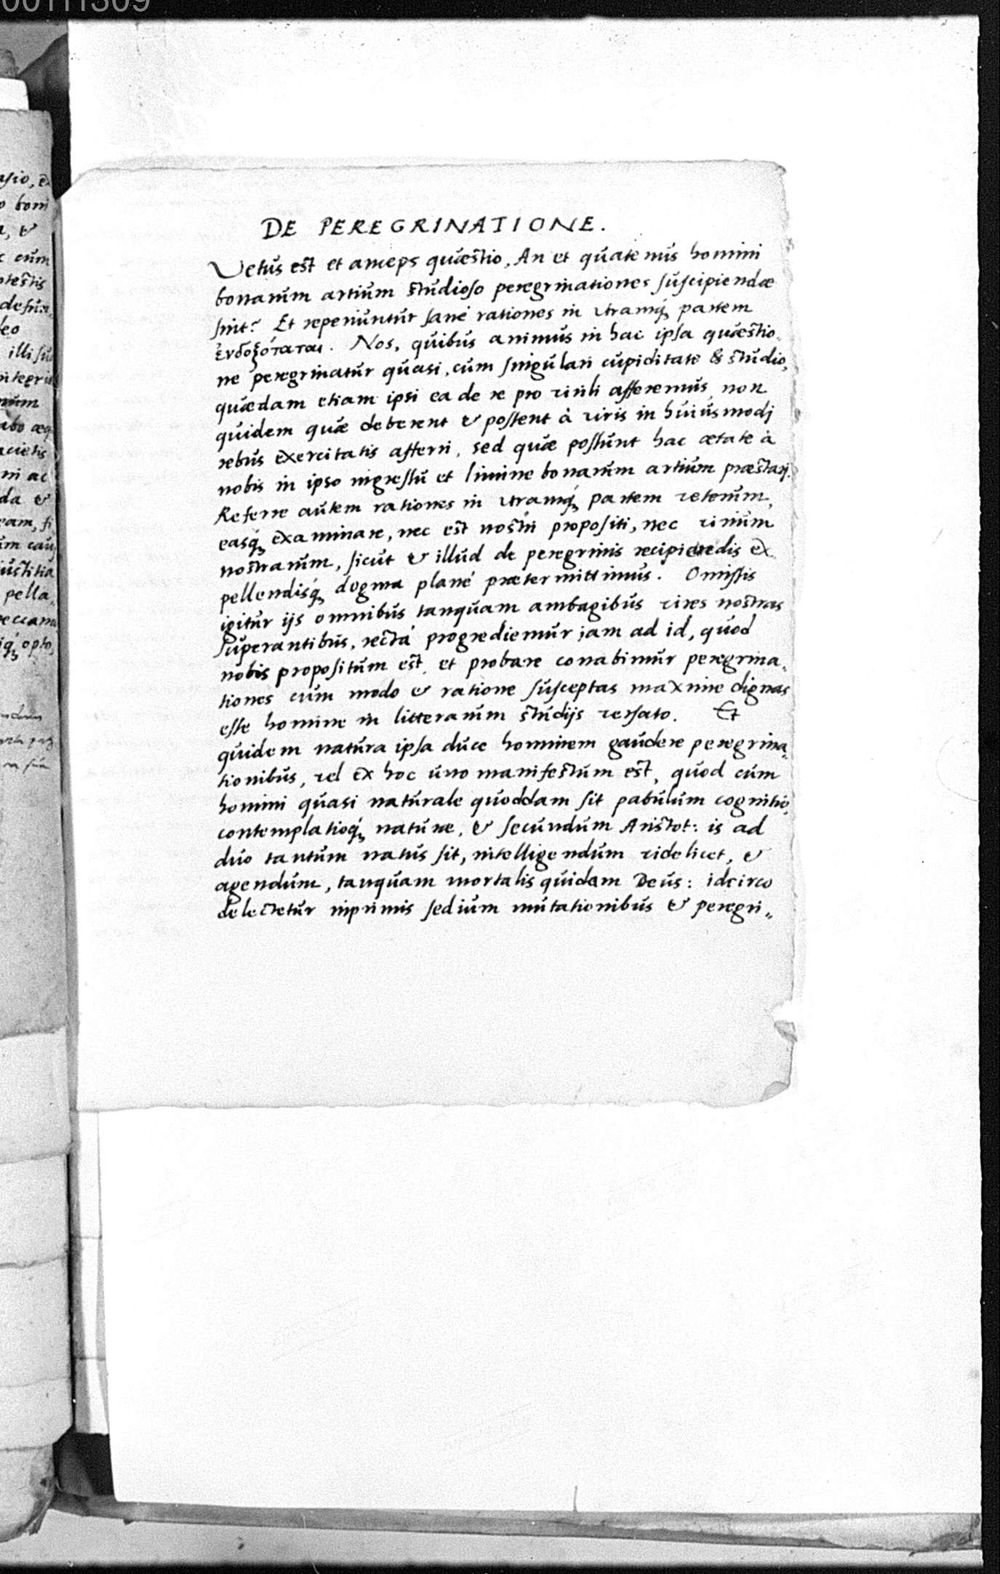 00111309
DE PEREGRINATIONE.
Vetus est et anceps quæstio, An et quatenus homini
bonarum artium studioso peregrinationes suscipiendæ
sint? Et reperiuntur sané rationes in utramq; partem
ἐνδοξόταται. Nos, quibus animus in hac ipsa quæstio-
ne peregrinatur quasi, cum singulari cupiditate & studio,
quædam etiam ipsi ea de re pro virili afferemus, non
quidem quæ deberent & possent à viris in huiusmodj
rebus exercitatis afferri, sed quæ possunt hac ætate à
nobis in ipso ingressu et limine bonarum artium præstarj.
Referre autem rationes in utramq; partem veterum,
easq; examinare, nec est nostri propositi, nec virium
nostrarum, sicut & illud de peregrinis recipiendis ex
pellendisq; dogma plané prætermittimus. Omissis
igitur ijs omnibus tanquam ambagibus vires nostras
superantibus, rectá progrediemur jam ad id, quod
nobis propositum est, et probare conabimur peregrina-
tiones cum modo & ratione susceptas maxime dignas
esse homine in litterarum studijs versato. Et
quidem natura ipsa duce hominem gaudere peregrina-
tionibus, vel ex hoc uno manifestum est, quod cum
homini quasi naturale quoddam sit pabulum cognitio,
contemplatioq; naturæ, & secundum Aristot: is ad
duo tantum natus sit, intelligendum videlicet, &
agendum, tanquam mortalis quidam Deus: idcirco
delectetur inprimis sedium mutationibus & peregri-